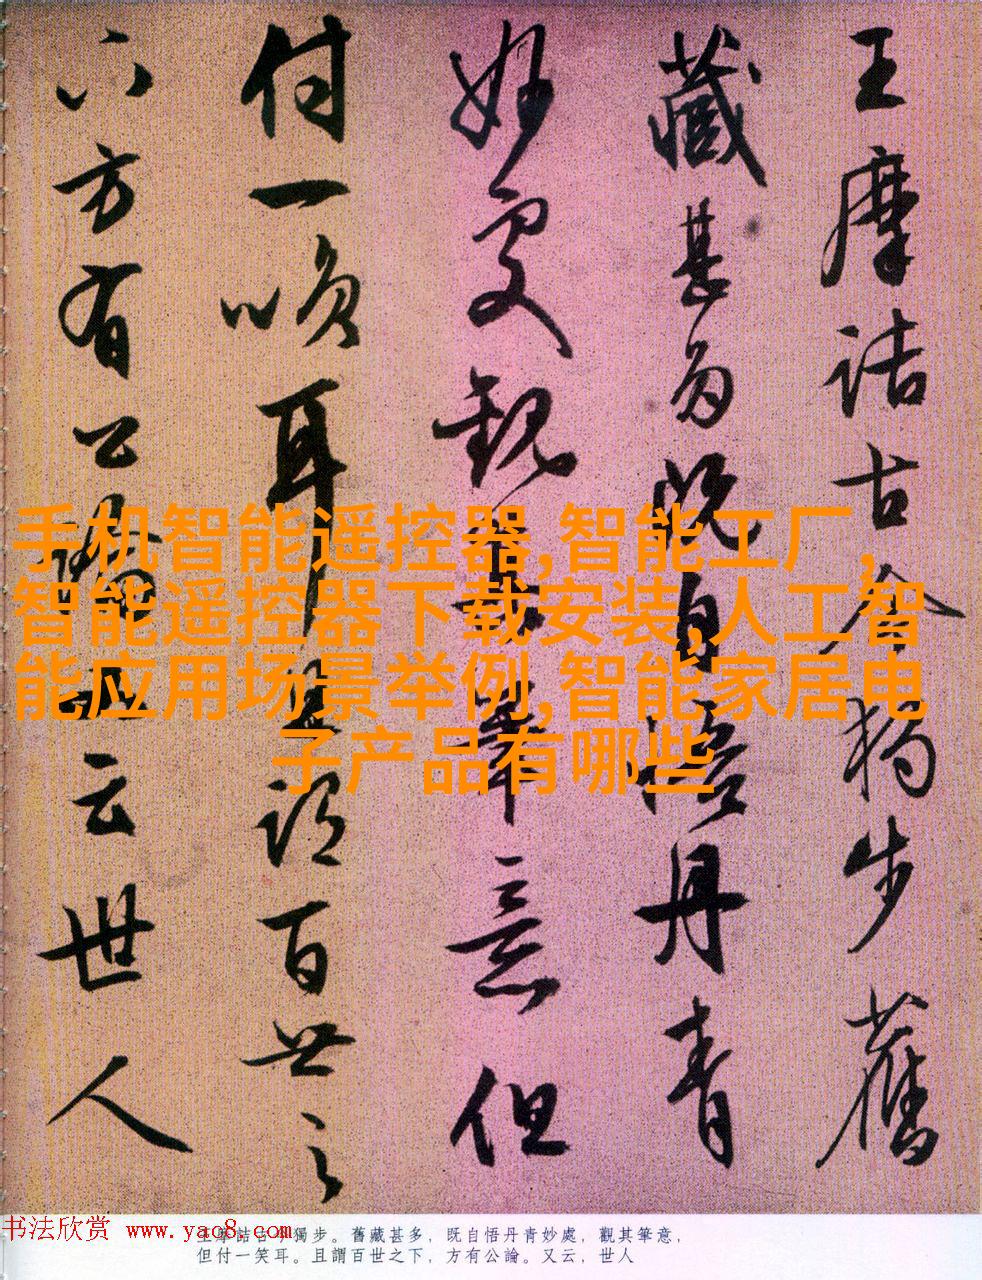 王摩詰古今獨步舊
藏甚多既自悟丹青
妙處觀其筆意但
付一咲耳且謂百世之
下方有公論又云世人
手机智能遥控器,智能工厂,
智能遥控器下载安装,人工智
能应用场景举例,智能家居电
子产品有哪些
书法欣赏 www.yac8.com
王摩詰古今獨步。舊藏甚多，既自悟丹青妙處，觀其筆意，
但付一笑耳。且謂百世之下，方有公論。又云，世人